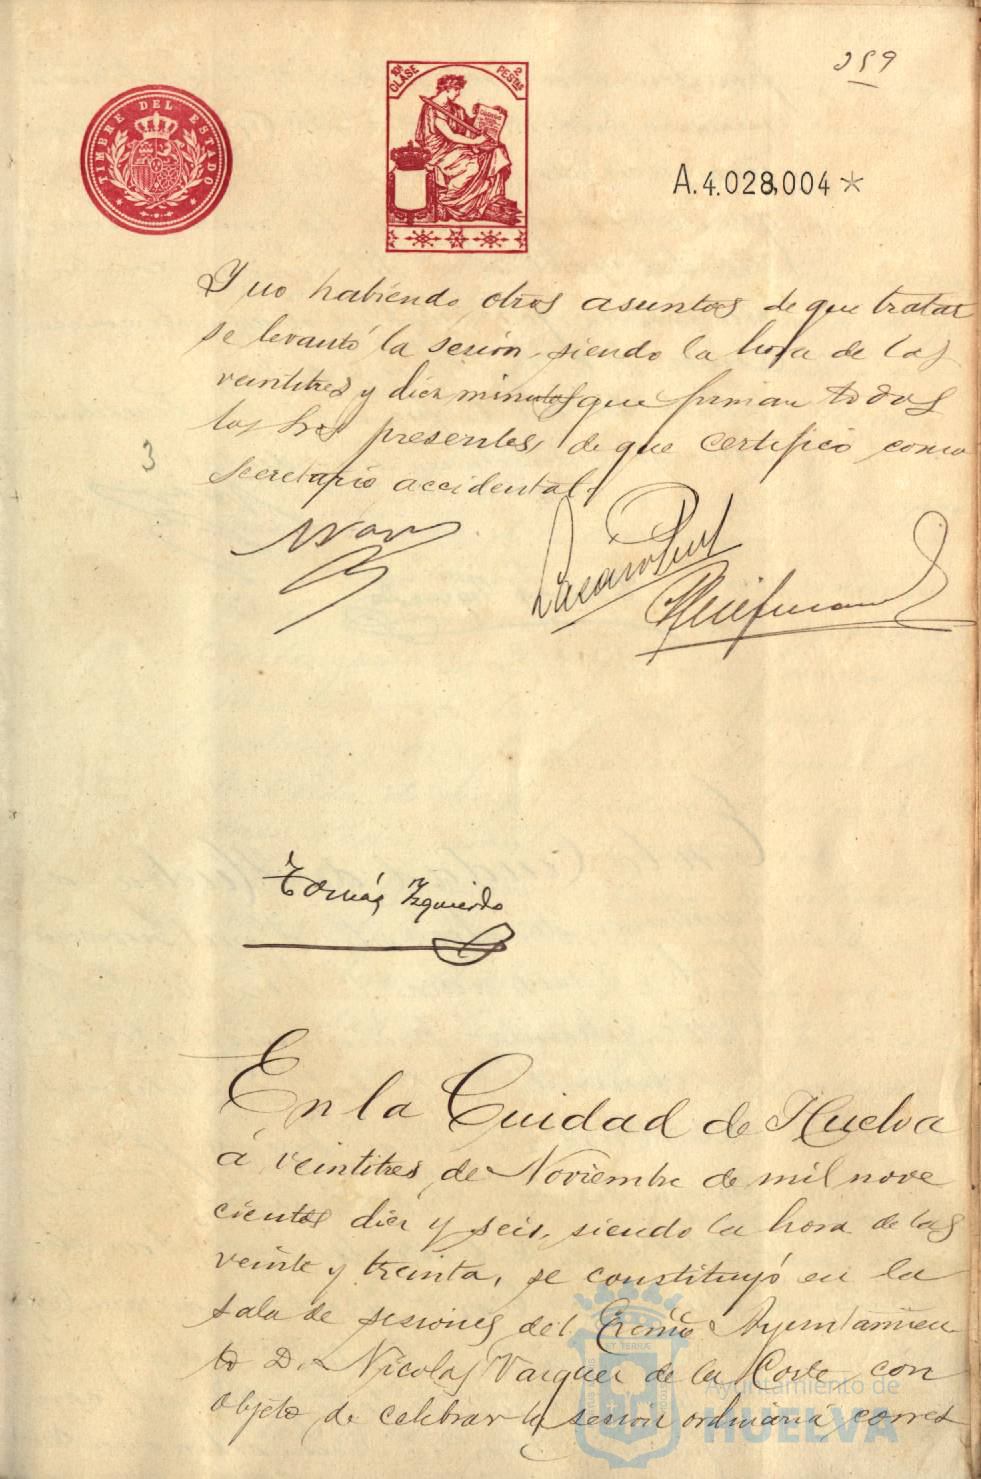 259
TIMBRE DEL ESTADO
10ª CLASE
2 PESTAS
A.4.028,004*
Y no habiendo otros asuntos de que tratar
se levantó la sesión, siendo la hora de las
veintitres y diez minutos que firman todos
los Sres presentes, de que certifico como
3
secretario accidental.
Tomás Izquierdo
En la Cuidad de Huelva
á veintitres de Noviembre de mil nove
cientos diez y seis, siendo la hora de las
veinte y treinta, se constituyó en la
sala de sesiones del Excmo Ayuntamien
to D. Nicolas Vazquez de la Corte con
objeto de celebrar la sesion ordinaria corres
Ayuntamiento de
HUELVA